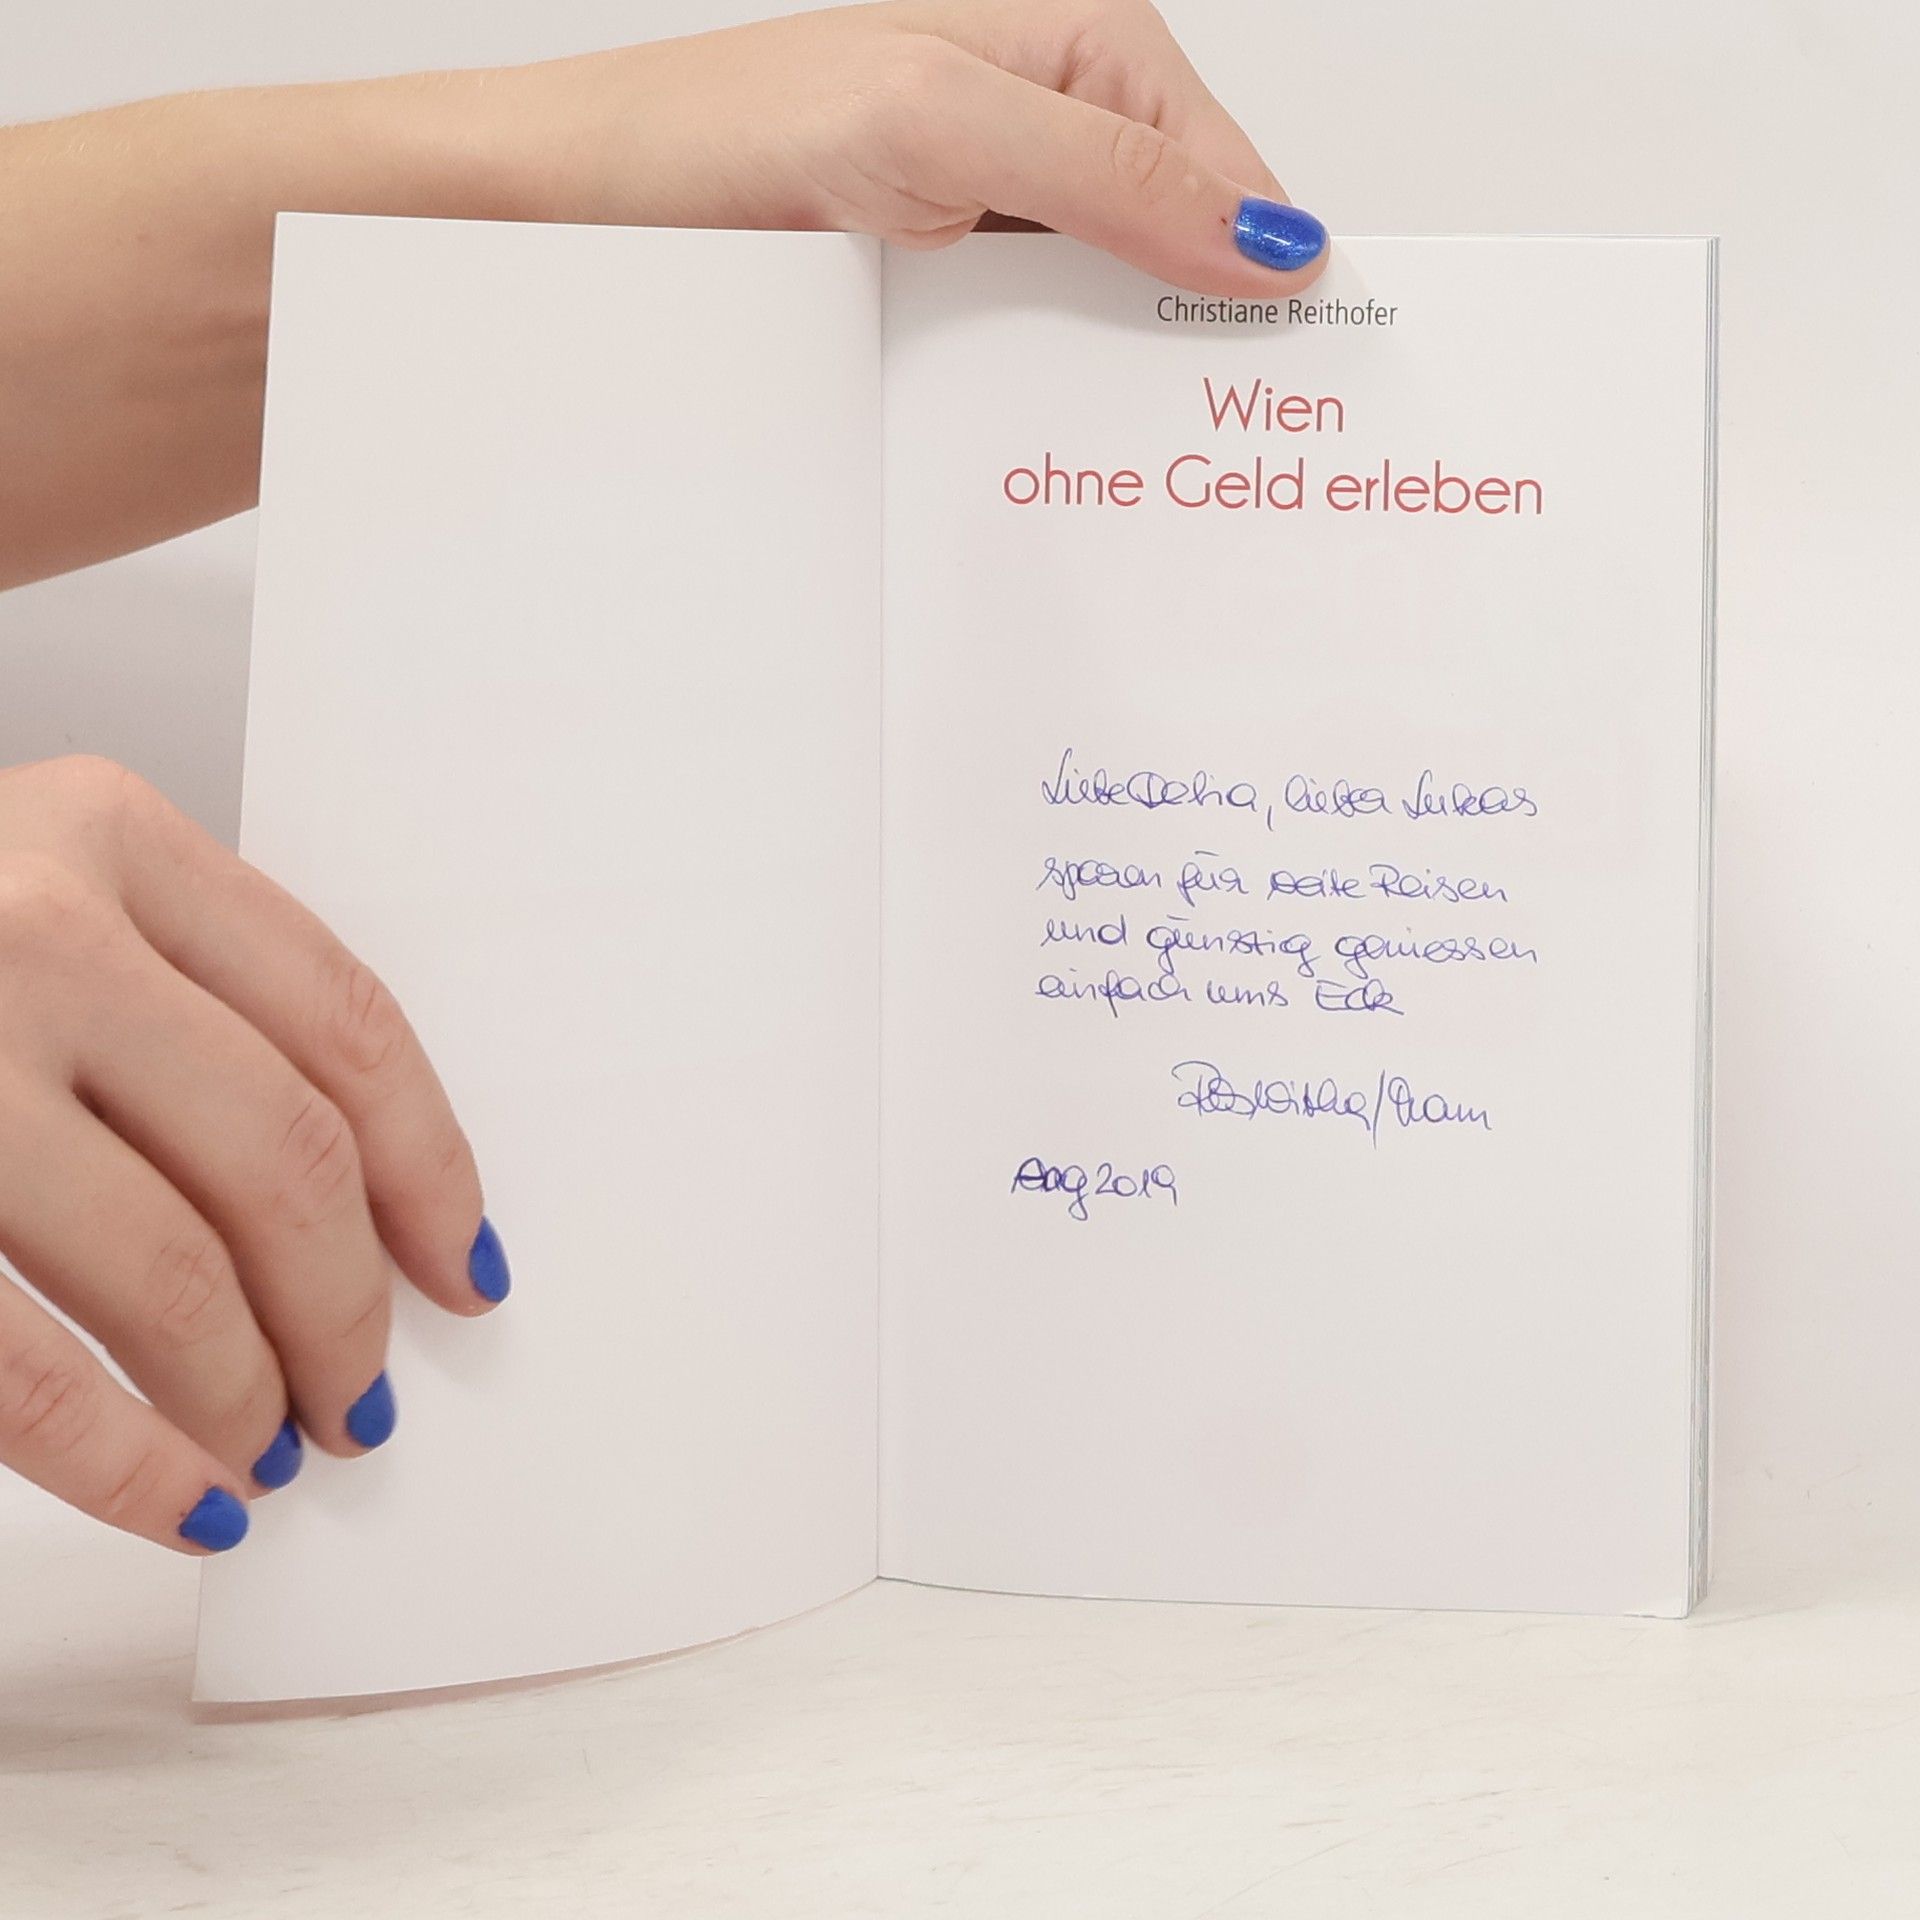 Christiane Reithofer
Wien
ohne Geld erleben
Liebe Delia, lieber Lukas
sparen für weite Reisen
und günstig geniessen
einfach ums Eck
Aug 2019